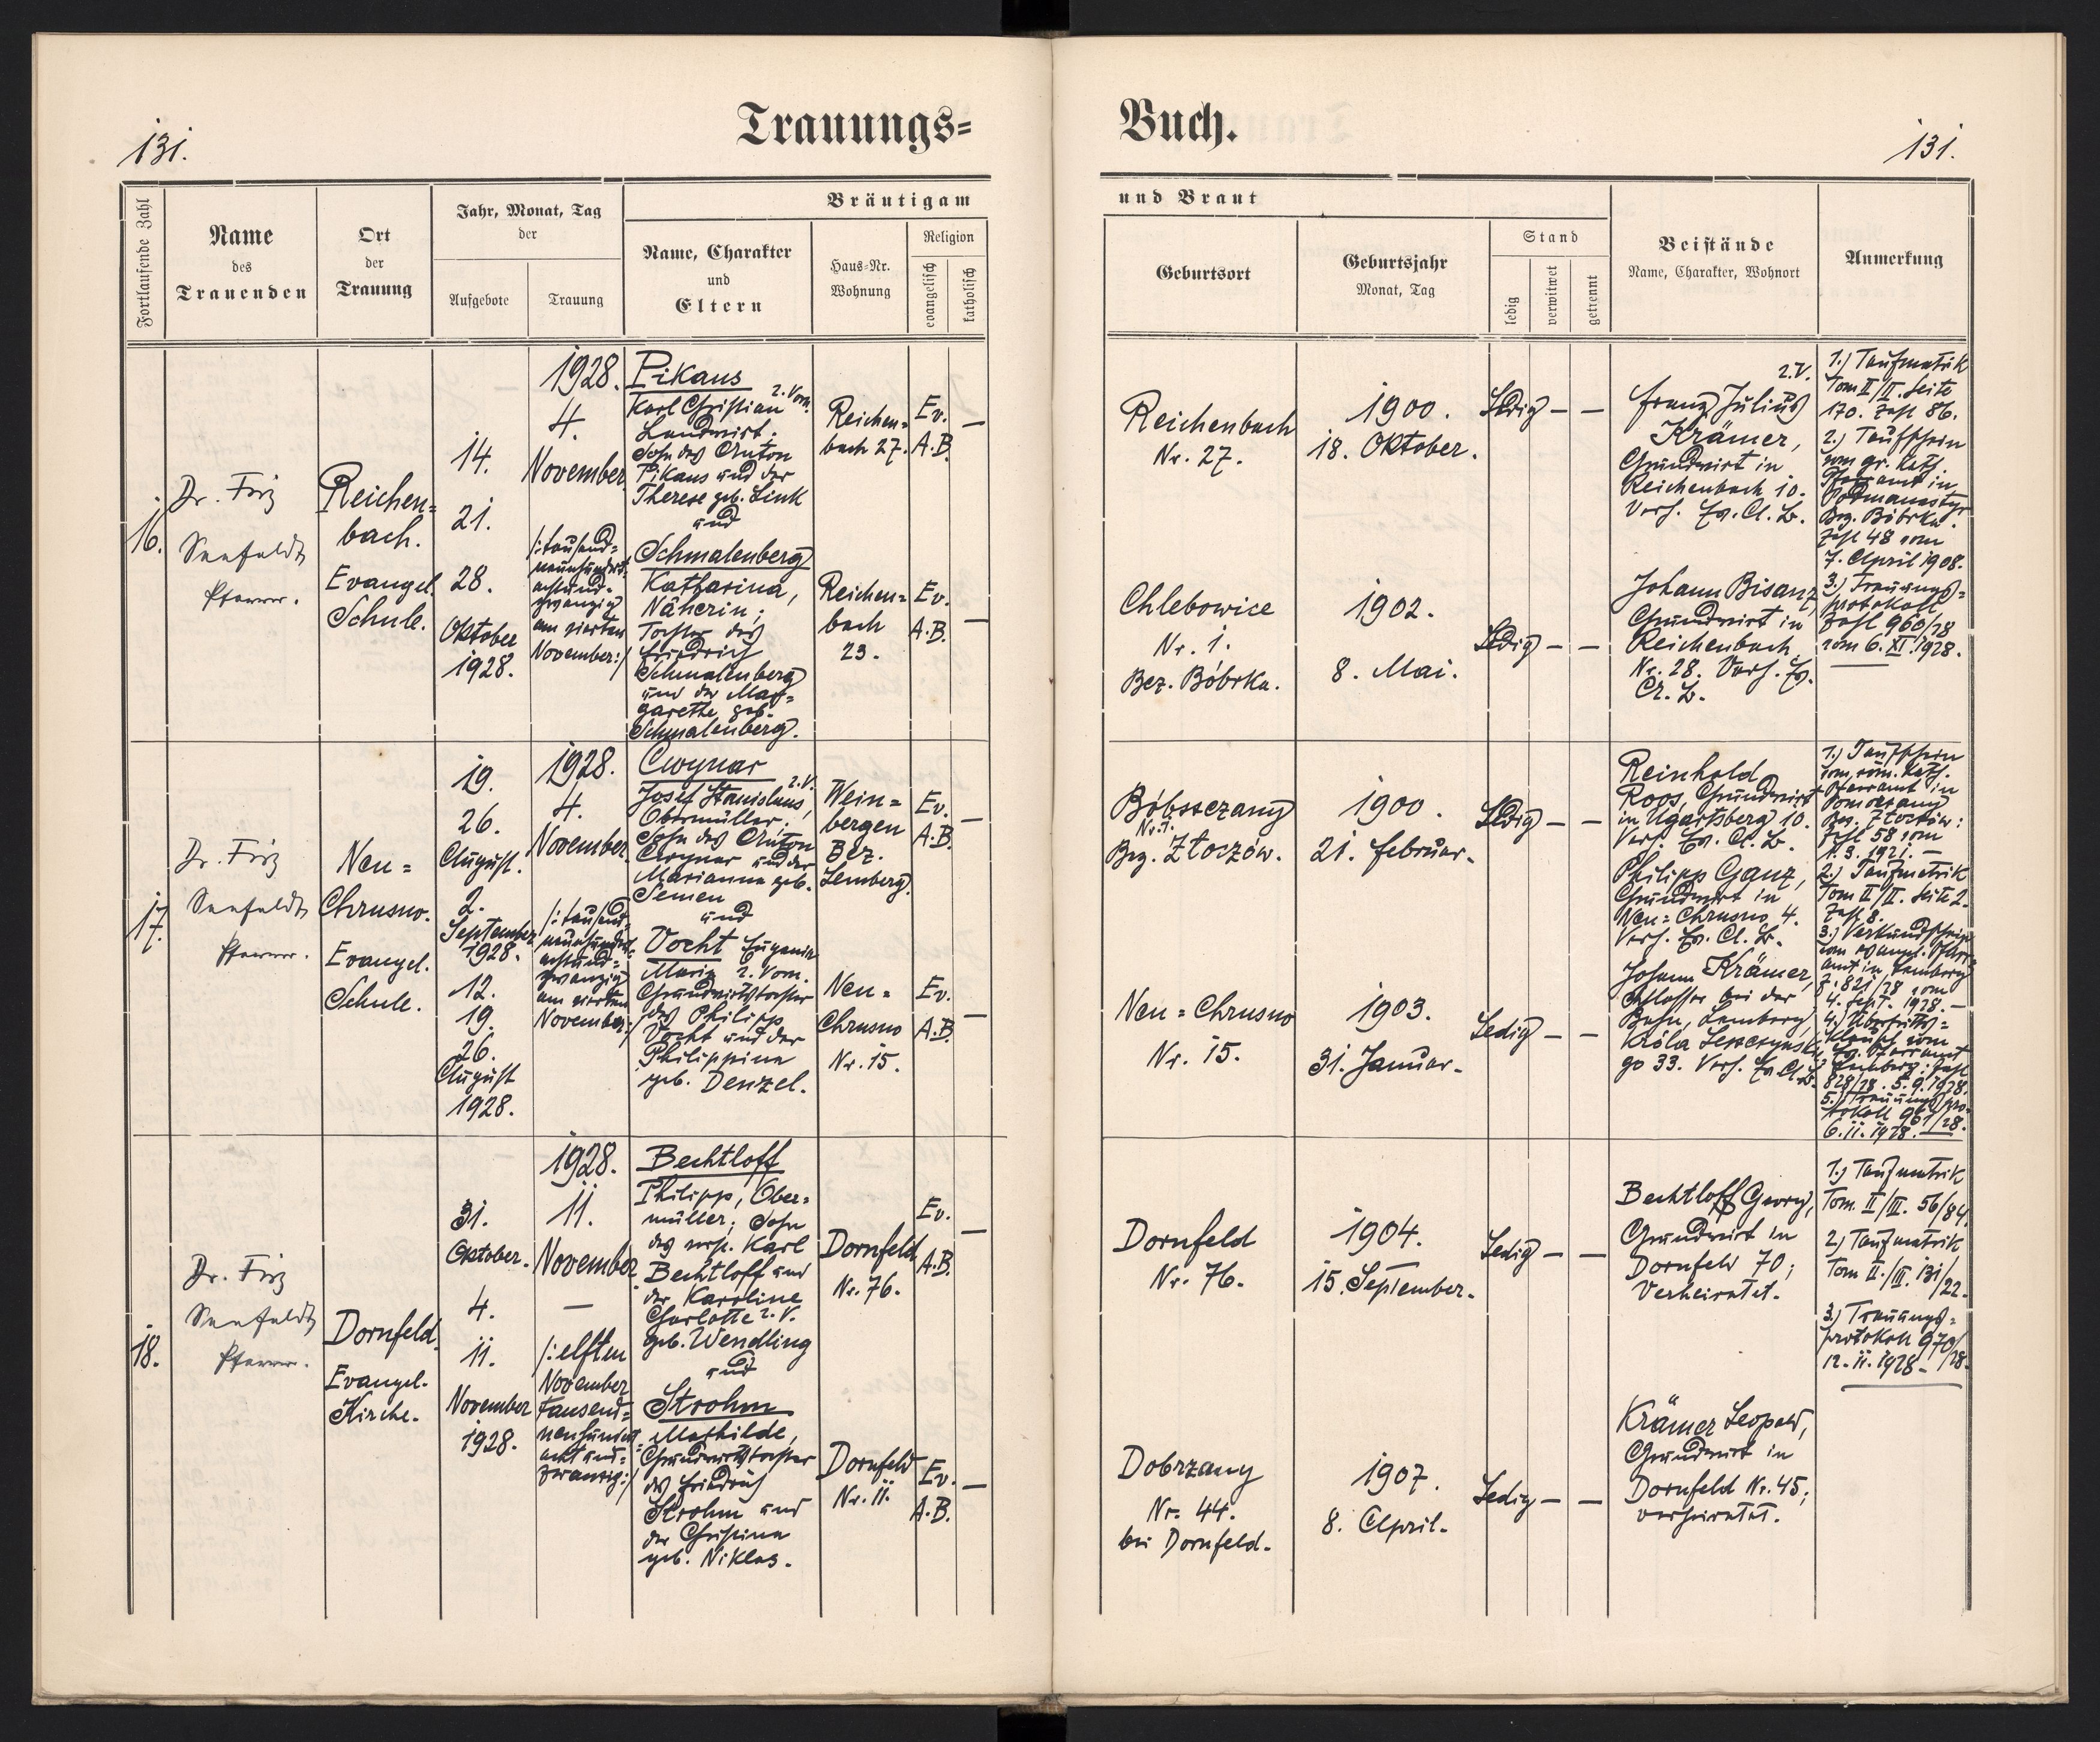 131.
Trauungs=
Buch.
131.
Fortlaufende Zahl
Name
des
Trauenden
Ort
der
Trauung
Jahr, Monat, Tag
der
Aufgebote
Trauung
Bräutigam
Name, Charakter
und
Eltern
Haus=Nr.
Wohnung
Religion
evangelisch
katholisch
und Braut
Geburtsort
Geburtsjahr
Monat, Tag
Stand
ledig
verwitwet
getrennt
Beistände
Name, Charakter, Wohnort
Anmerkung
16.
Dr. Friz
Seefeldt
Pfarrer.
Reichen=
bach.
Evangel.
Schule.
14.
21.
28.
Oktober
1928.
1928.
4.
November
/:tausend=
neunhundert
achtund=
zwanzig
am vierten
November:/
Pikaus
Karl Christian 2. Vorn.
Landwirt;
Sohn des Anton
Pikaus und der
Therese geb. Link
und
Schmalenberg
Katharina,
Näherin;
Tochter des
Friedrich
Schmalenberg
und der Mar=
garethe geb.
Schmalenberg.
Reichen=
bach 27.
Ev.
A.B.
—
Reichen=
bach
23.
Ev.
A.B.
—
Reichenbach
Nr. 27.
1900.
18. Oktober.
Ledig — —
Chlebowice
Nr. 1.
Bez. Bóbrka.
1902.
8. Mai.
Ledig — —
2.V.
Franz Julius
Krämer,
Grundwirt in
Reichenbach 10.
Verh. Ev. A. B.
Johann Bisanz,
Grundwirt in
Reichenbach
Nr. 28. Verh. Ev.
A. B.
1.) Taufmatrik
Tom II/II. Seite
170. Zahl 86.
2.) Taufschein
vom gr. kath.
Pfarramt in
Bez. Bóbrka.
Zahl 48 vom
7. April 1908.
3.) Trauungs=
protokoll
Zahl 960/28
vom 6. XI. 1928.
17.
Dr. Friz
Seefeldt
Pfarrer.
Neu=
Chrusno.
Evangel.
Schule.
19.
26.
August.
2.
September
1928.
12.
19.
26.
August
1928.
1928.
4.
November
/:tausend
neunhundert
achtund=
zwanzig
am vierten
November:/
Cwynar
Josef Stanislaus, 2.V.
Obermüller;
Sohn des Anton
Cwynar und der
Marianna geb.
Semen
und
Vocht Eugenia
Maria 2. Vorn.
Grundwirtstochter
des Philipp
Vocht und der
Philippina
geb. Denzel.
Wein=
bergen
Bez.
Lemberg.
Ev.
A.B.
—
Neu=
Chrusno
Nr. 15.
Ev.
A.B.
—
Nr. 1.
Bez. Złoczów.
1900
21. Februar.
Ledig — —
Neu=Chrusno
Nr. 15.
1903.
31. Januar.
Ledig — —
Reinhold
Roos, Grundwirt
in Ugartsberg 10.
Verh. Ev. A. B.
Philipp Ganz,
Grundwirt in
Neu=Chrusno 4.
Verh. Ev. A. B.
Johann Krämer,
Schlosser bei der
Bahn, Lemberg
Króla Leszczyńskie
go 33. Verh. Ev. A. B.
1.) Taufschein
vom röm. kath.
Pfarramt in
Pomorzany
Bez. Złoczów:
Zahl 58 vom
1. 3. 1921. —
2.) Taufmatrik
Tom II/II. Seite 2.
Zahl 8.
3.) Verkündschein
vom evangel. Pfarr=
amt in Lemberg
Z: 821/28 vom
4. Sept. 1928. —
4.) Übertritts=
vom
Ev. Pfarramt
Lemberg: Zahl
828/28. 5. 9. 1928.
5.) Trauungspro=
tokoll 961/28.
6. 11. 1928.
18.
Dr. Friz
Seefeldt
Pfarrer.
Dornfeld.
Evangel.
Kirche.
31.
Oktober.
4.
11.
November
1928.
1928.
11.
November
—
/:elften
November
tausend=
neunhundert
achtund=
zwanzig:/
Bechtloff
Philipp, Ober=
müller; Sohn
des verst. Karl
Bechtloff und
der Karoline
Charlotte 2. V.
geb. Wendling
und
Strohm
Mathilde,
Grundwirtstochter
des Friedrich
Strohm und
der Christina
geb. Niklas.
Dornfeld
Nr. 76.
Ev.
A.B.
—
Dornfeld
Nr. 11.
Ev.
A.B.
—
Dornfeld
Nr. 76.
1904.
15. September.
Ledig — —
Dobrzany
Nr. 44.
bei Dornfeld.
1907.
8. April.
Ledig — —
Bechtloff Georg,
Grundwirt in
Dornfeld 70;
Verheiratet.
Krämer Leopold,
Grundwirt in
Dornfeld Nr. 45;
verheiratet.
1.) Taufmatrik
Tom. II/III. 56/84.
2.) Taufmatrik
Tom II./III. 131/22.
3.) Trauungs=
protokoll 970/28.
12. 11. 1928.